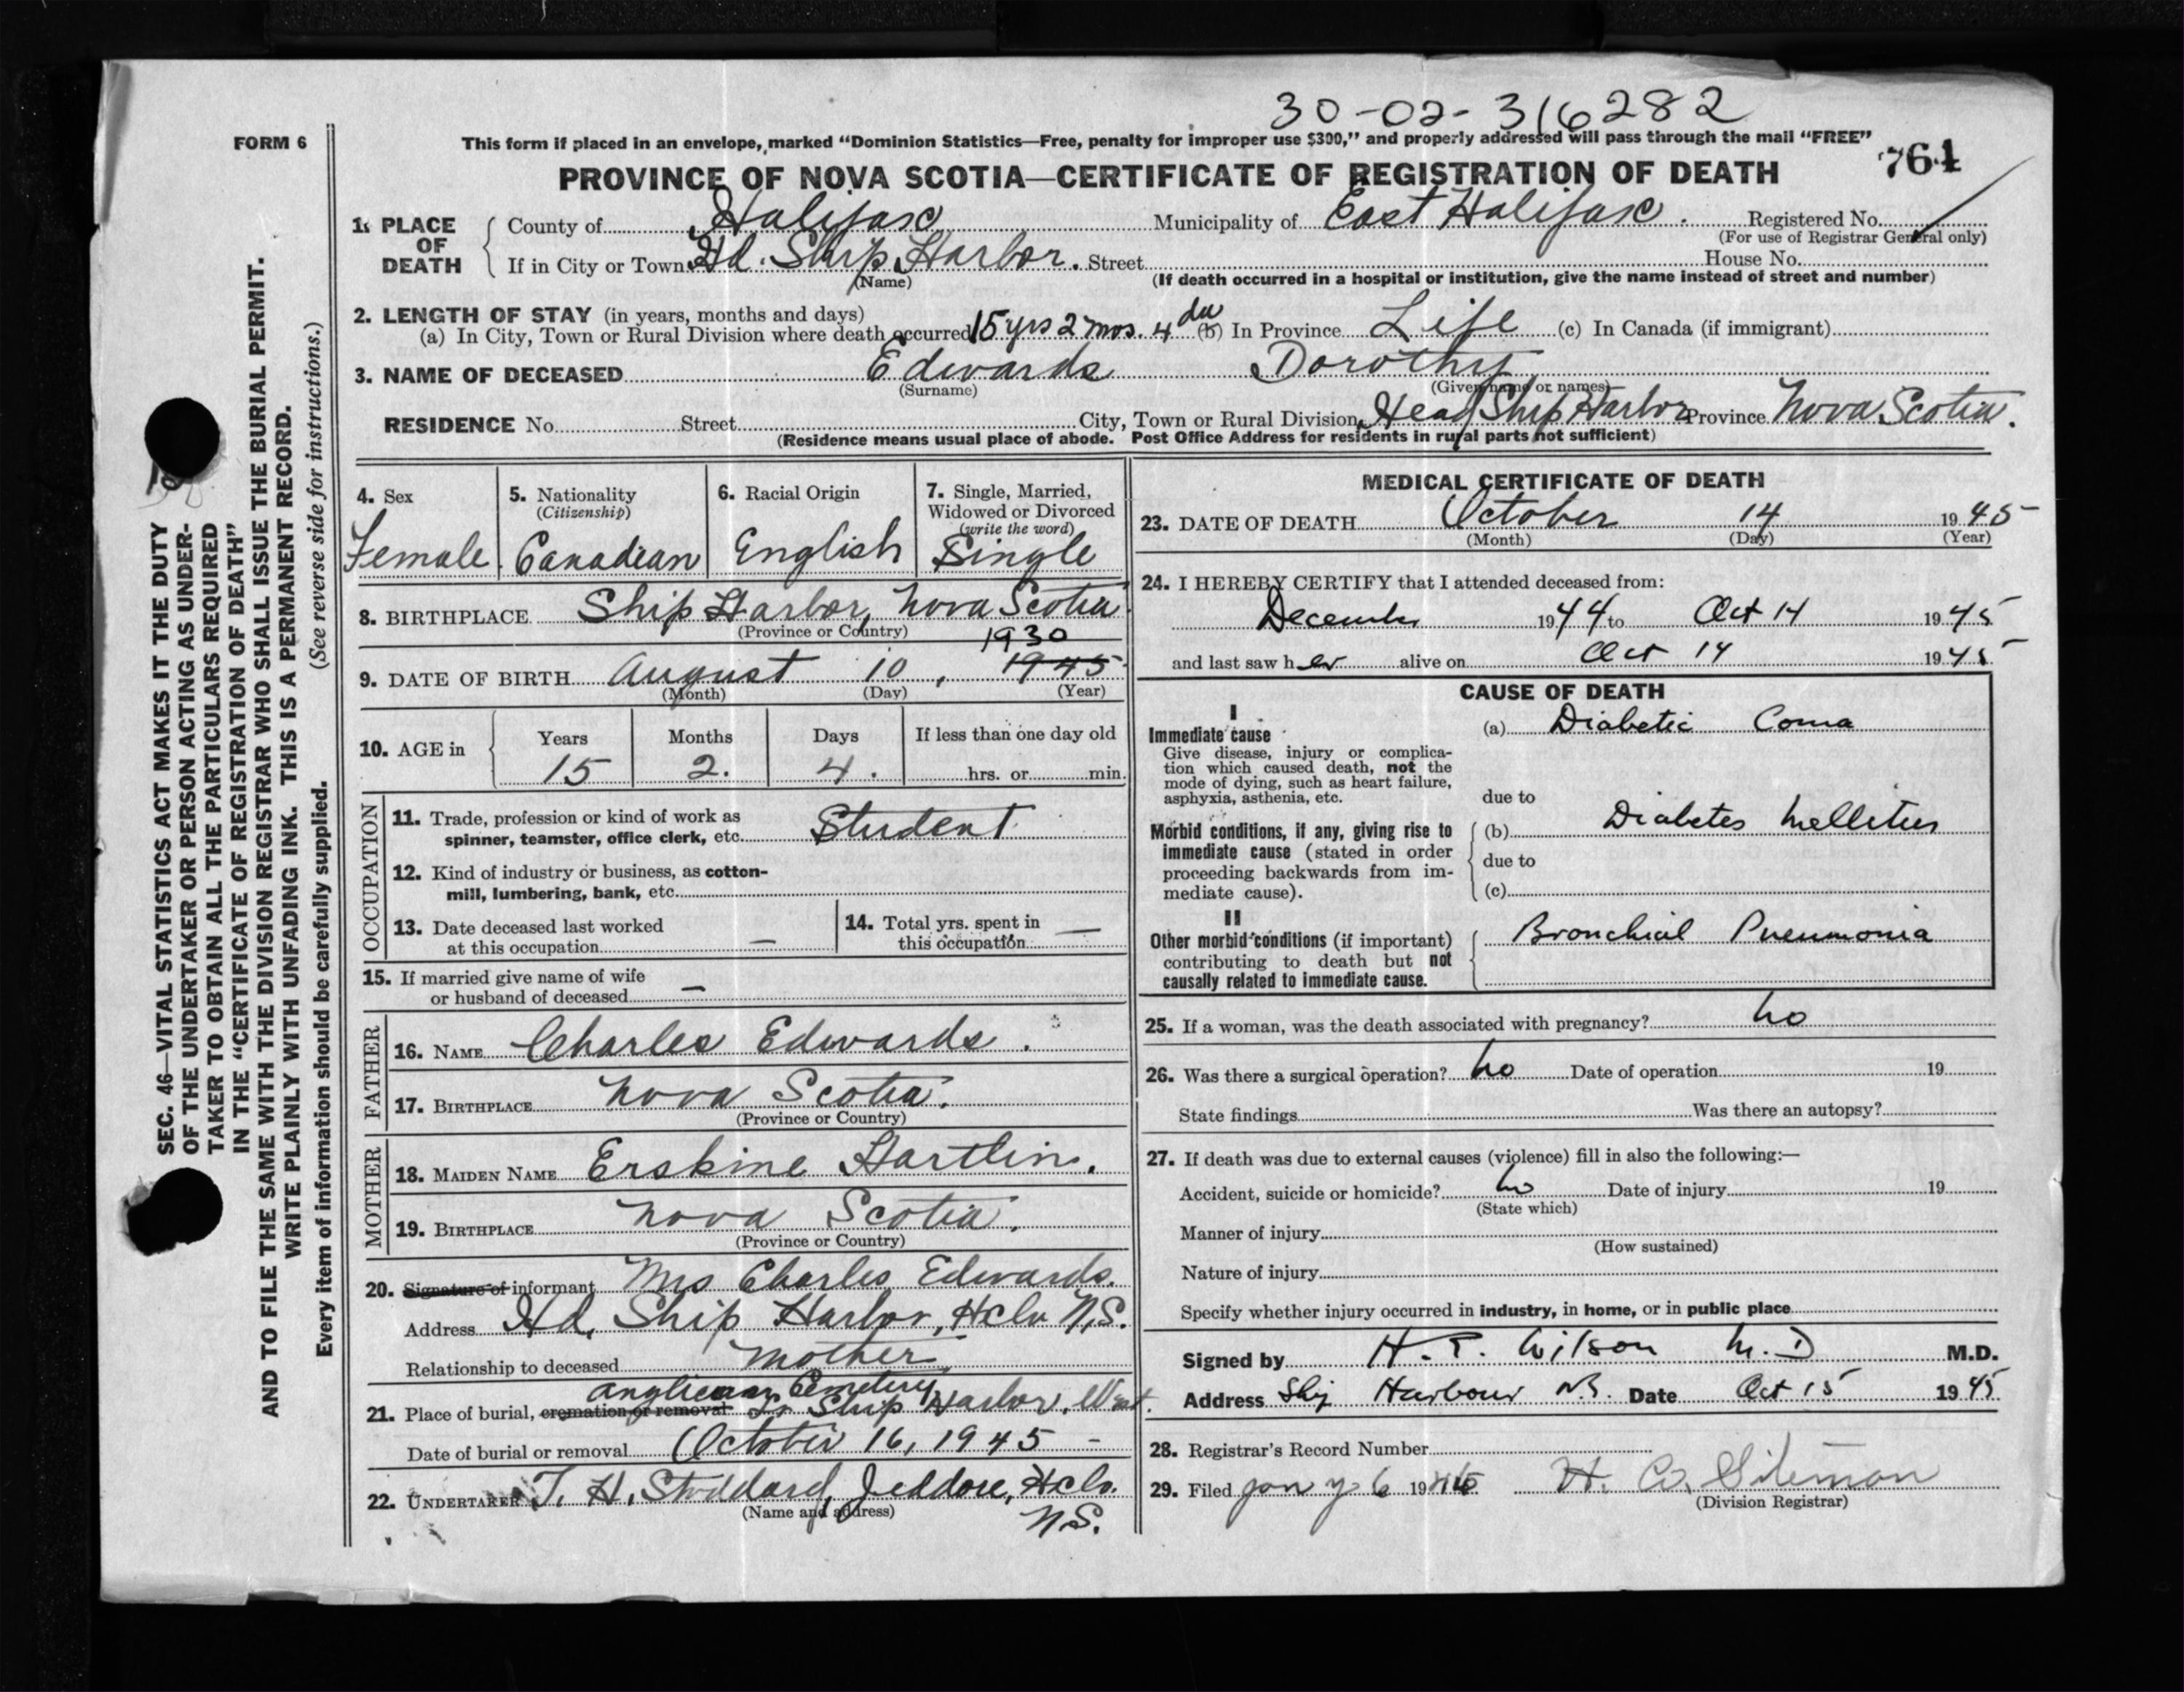 30-02-316282
FORM 6
This form if placed in an envelope, marked "Dominion Statistics—Free, penalty for improper use $300," and properly addressed will pass through the mail "FREE"
PROVINCE OF NOVA SCOTIA—CERTIFICATE OF REGISTRATION OF DEATH
764
1. PLACE OF DEATH
County of Halifax Municipality of East Halifax. Registered No.
(For use of Registrar General only)
If in City or Town Hd. Ship Harbor. Street House No.
(Name) (If death occurred in a hospital or institution, give the name instead of street and number)
2. LENGTH OF STAY (in years, months and days)
(a) In City, Town or Rural Division where death occurred 15 yrs 2 mos. 4 da (b) In Province Life (c) In Canada (if immigrant)
3. NAME OF DECEASED Edwards Dorothy
(Surname) (Given name or names)
RESIDENCE No. Street City, Town or Rural Division Head Ship Harbor Province Nova Scotia.
(Residence means usual place of abode. Post Office Address for residents in rural parts not sufficient)
SEC. 46—VITAL STATISTICS ACT MAKES IT THE DUTY
OF THE UNDERTAKER OR PERSON ACTING AS UNDER-
TAKER TO OBTAIN ALL THE PARTICULARS REQUIRED
IN THE "CERTIFICATE OF REGISTRATION OF DEATH"
AND TO FILE THE SAME WITH THE DIVISION REGISTRAR WHO SHALL ISSUE THE BURIAL PERMIT.
WRITE PLAINLY WITH UNFADING INK. THIS IS A PERMANENT RECORD.
Every item of information should be carefully supplied. (See reverse side for instructions.)
4. Sex
Female.
5. Nationality
(Citizenship)
Canadian
6. Racial Origin
English
7. Single, Married,
Widowed or Divorced
(write the word)
Single
8. BIRTHPLACE Ship Harbor, Nova Scotia
(Province or Country)
1930
9. DATE OF BIRTH August 10, 1945
(Month) (Day) (Year)
10. AGE in
Years Months Days If less than one day old
15 2. 4. hrs. or min.
OCCUPATION
11. Trade, profession or kind of work as
spinner, teamster, office clerk, etc. Student
12. Kind of industry or business, as cotton-
mill, lumbering, bank, etc.
13. Date deceased last worked
at this occupation —
14. Total yrs. spent in
this occupation —
15. If married give name of wife
or husband of deceased —
FATHER
16. NAME Charles Edwards.
17. BIRTHPLACE Nova Scotia.
(Province or Country)
MOTHER
18. MAIDEN NAME Erskine Hartlin.
19. BIRTHPLACE Nova Scotia.
(Province or Country)
20. Signature of informant Mrs Charles Edwards.
Address Hd. Ship Harbor, N.S.
Relationship to deceased mother
Anglican Cemetery
21. Place of burial, cremation or removal Ship Harbor, West.
Date of burial or removal October 16, 1945 -
22. UNDERTAKER T. H. Stoddard, Jeddore,
(Name and address)
N.S.
MEDICAL CERTIFICATE OF DEATH
23. DATE OF DEATH October 14 1945
(Month) (Day) (Year)
24. I HEREBY CERTIFY that I attended deceased from:
December 1944 to Oct 14 1945
and last saw her alive on Oct 14 1945
CAUSE OF DEATH
I
Immediate cause
Give disease, injury or complica-
tion which caused death, not the
mode of dying, such as heart failure,
asphyxia, asthenia, etc.
(a) Diabetic Coma
due to
Morbid conditions, if any, giving rise to
immediate cause (stated in order
proceeding backwards from im-
mediate cause).
(b) Diabetes Mellitus
due to
(c)
II
Other morbid conditions (if important)
contributing to death but not
causally related to immediate cause.
Bronchial Pneumonia
25. If a woman, was the death associated with pregnancy? no
26. Was there a surgical operation? no Date of operation 19
State findings Was there an autopsy?
27. If death was due to external causes (violence) fill in also the following:—
Accident, suicide or homicide? no Date of injury 19
(State which)
Manner of injury
(How sustained)
Nature of injury
Specify whether injury occurred in industry, in home, or in public place
Signed by H. T. Wilson M.D M.D.
Address Ship Harbour N.S. Date Oct 15 1945
28. Registrar's Record Number
29. Filed 6 1946 H. Siteman
(Division Registrar)